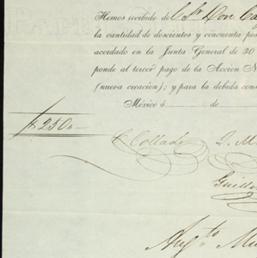 Hemos recibido de
la cantidad de doscientos y cincuenta pes
acordado en la Junta General de 30
ponde al tercer pago de la Accion N
(nueva creacion); y para la debida cons
México á de
$250
C. Collado J. M
Guiller